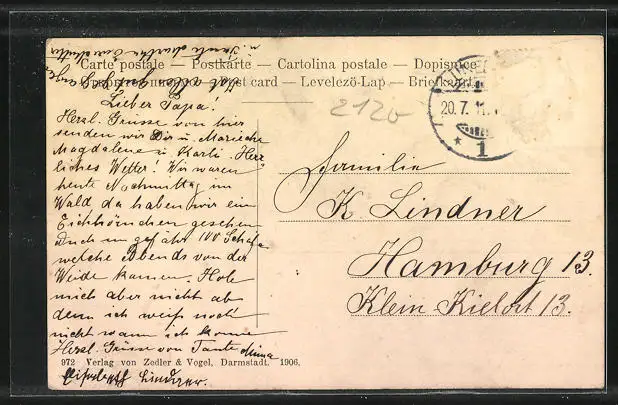 Carte postale — Postkarte — Cartolina postale — Dopisnice
Post card — Levelező-Lap — Briefkaart
20.7.11.
1
2120
Lieber Papa!
Herzl. Grüsse von hier
senden wir Dir u. Mariechen
Magdalene u. Karli. Herr-
liches Wetter! Wir waren
heute Nachmittag im
Wald da haben wir ein
Eichhörnchen gesehen
Auch ungefähr 100 Schafe
welche Abends von der
Weide kamen. Hole
mich aber nicht ab
denn ich weiß noch
nicht wann ich komme
Herzl. Grüsse von Tante Minna
Elisabeth Lindner.
Familie
K Lindner
Hamburg 13.
Klein Kielort 13.
972 Verlag von Zedler & Vogel, Darmstadt. 1906.